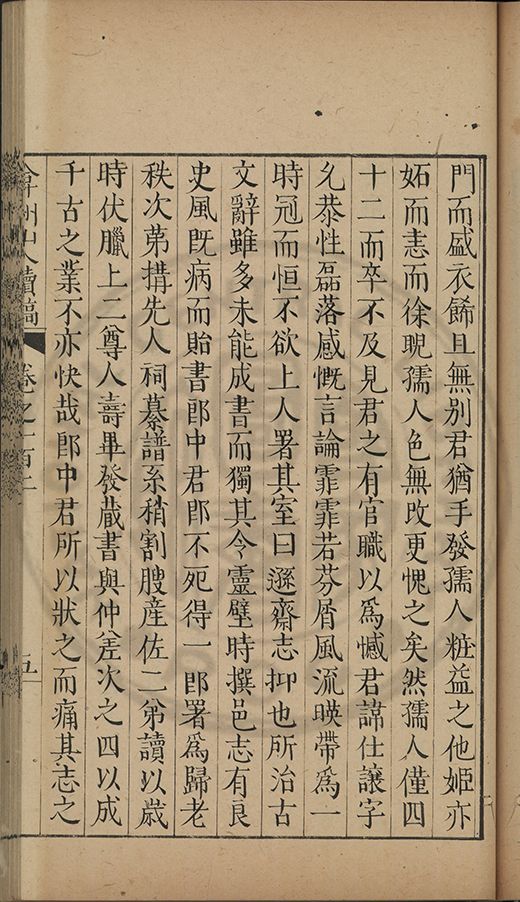 門而盛衣餙且無別君猶手發孺人粧益之他姬亦
妬而恚而徐睨孺人色無攺更愧之矣然孺人僅四
十二而卒不及見君之有官職以爲憾君諱仕讓字
允恭性磊落感慨言論霏霏若芬屑風流暎帶爲一
時冠而恒不欲上人署其室曰遜齋志抑也所治古
文辭雖多未能成書而獨其令靈壁時撰邑志有良
史風既病而貽書郎中君即不死得一郎署爲歸老
秩次苐搆先人祠纂譜系稍割腴産佐二弟讀以歳
時伏臘上二尊人壽畢發蔵書與仲差次之四以成
千古之業不亦快哉郎中君所以狀之而痛其志之
弇州山人續稿 卷之一百二 五